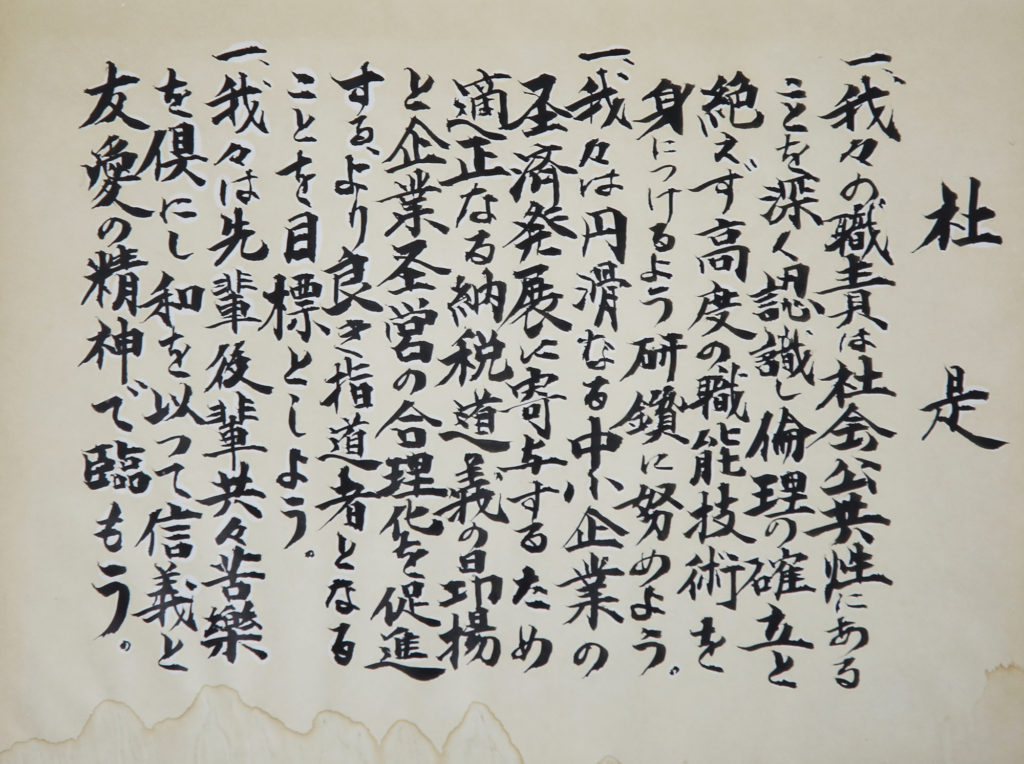 社是
一、我々の職責は社会公共性にある
ことを深く認識し倫理の確立と
絶えず高度の職能技術を
身につけるよう研鑽に努めよう。
一、我々は円滑なる中小企業の
圣済発展に寄与するため
適正なる納税道義の昂揚
と企業圣営の合理化を促進
する、より良き指道者となる
ことを目標としよう。
一、我々は先輩後輩共々苦樂
を倶にし和を以つて信義と
友愛の精神で臨もう。